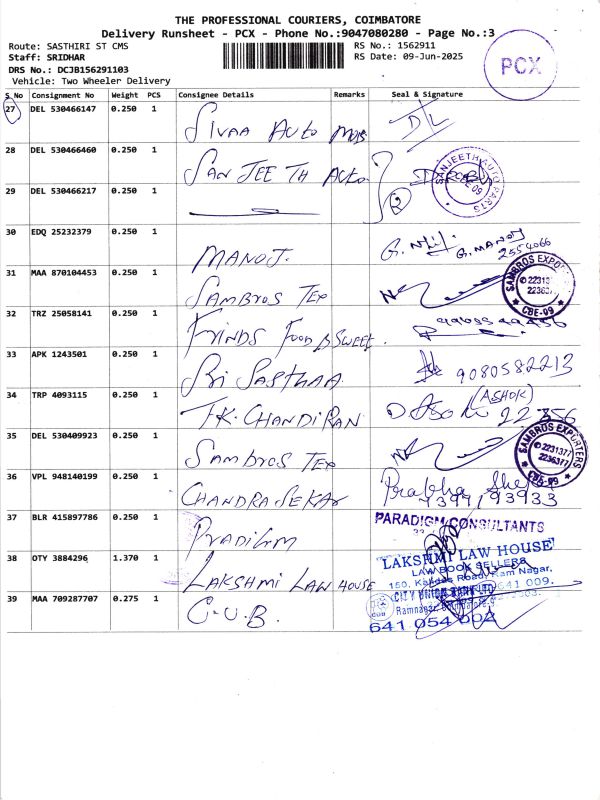 THE PROFESSIONAL COURIERS, COIMBATORE
Delivery Runsheet - PCX - Phone No.:9047080280 - Page No.:3
Route: SASTHIRI ST CMS
RS No.: 1562911
Staff: SRIDHAR
RS Date: 09-Jun-2025
DRS No.: DCJB156291103
Vehicle: Two Wheeler Delivery
PCX
S No Consignment No Weight PCS Consignee Details Remarks Seal & Signature
27 DEL 530466147 0.250 1 SIVAA AUTO
28 DEL 530466460 0.250 1 SANJEETH AUTO
SANJEETH AUTO PARTS CBE 09
29 DEL 530466217 0.250 1 2
30 EDQ 25232379 0.250 1 MANOJ. G. MANOJ
2554066
31 MAA 870104453 0.250 1 SAMBROS TEX
SAMBROS EXPORTERS CBE-09
32 TRZ 25058141 0.250 1 FOOD SWEET
33 APK 1243501 0.250 1 SRI SASTHAA 9080582213
34 TRP 4093115 0.250 1 T.K. CHANDIRAN (ASHOK)
35 DEL 530409923 0.250 1 SAMBROS TEX
SAMBROS EXPORTERS 2231377 CBE-09
36 VPL 948140199 0.250 1 CHANDRA SEKAR Prabha
37 BLR 415897786 0.250 1 PARADIGM CONSULTANTS
38 OTY 3884296 1.370 1 LAKSHMI LAW HOUSE
LAKSHMI LAW HOUSE
LAW BOOK SELLERS
150, Kalidas Road, Ram Nagar,
39 MAA 709287707 0.275 1 C.U.B.
CITY UNION BANK LTD
Ramnagar, Coimbatore-9
641 054 002